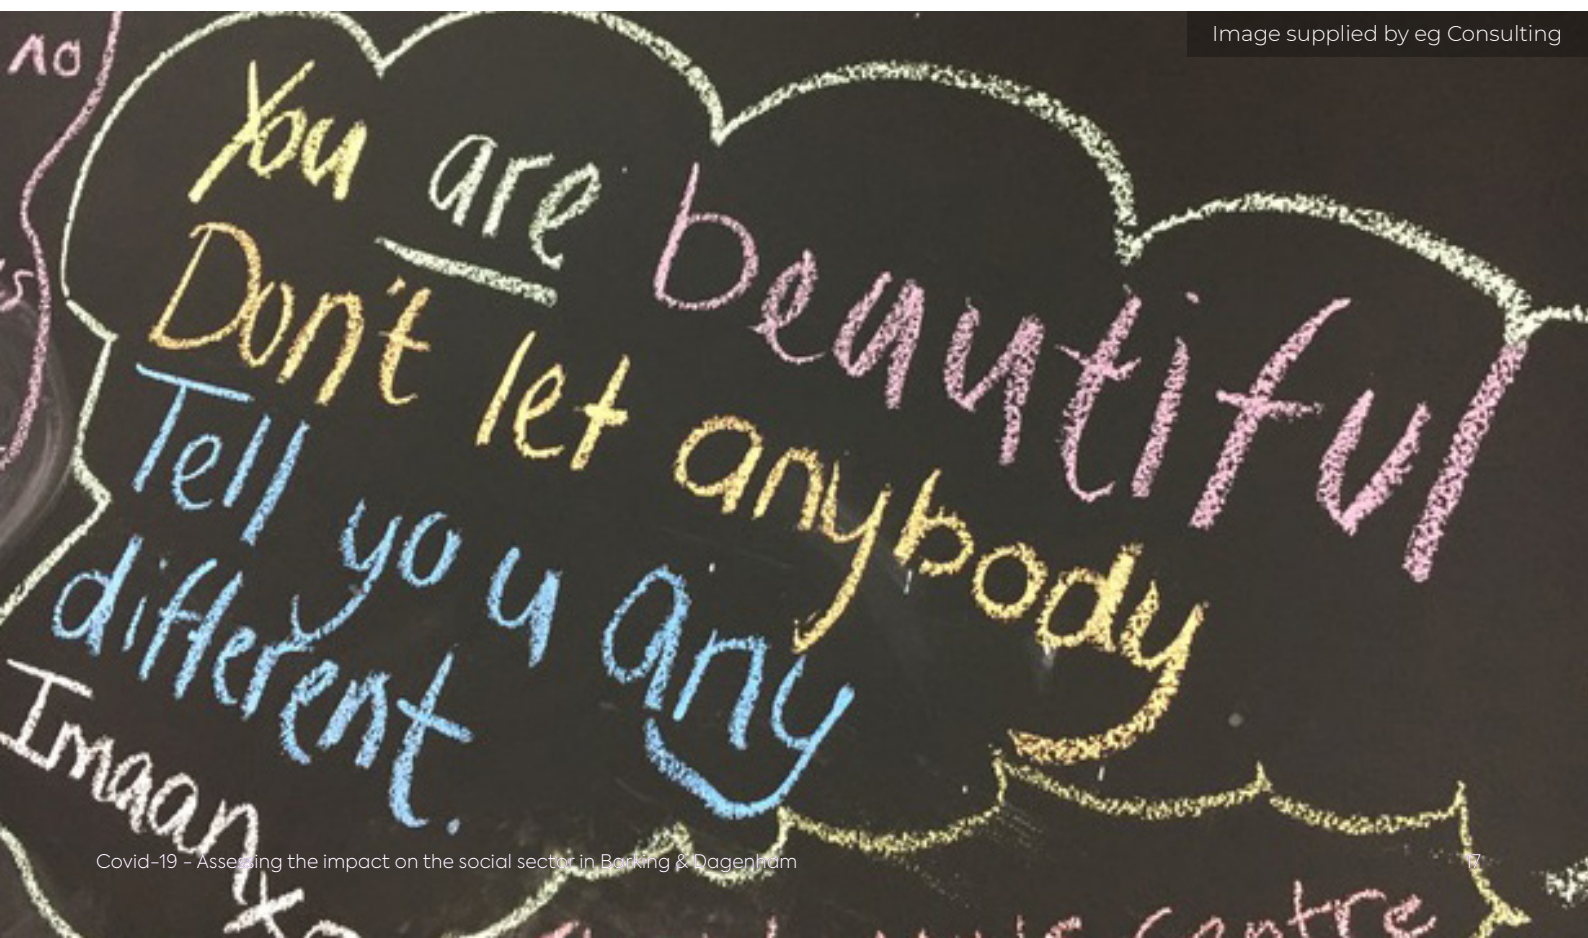 Image supplied by eg Consulting
no
You are beautiful
Don't let anybody
Tell you any
different.
Imaan
Covid-19 - Assessing the impact on the social sector in Barking & Dagenham
17
Centre